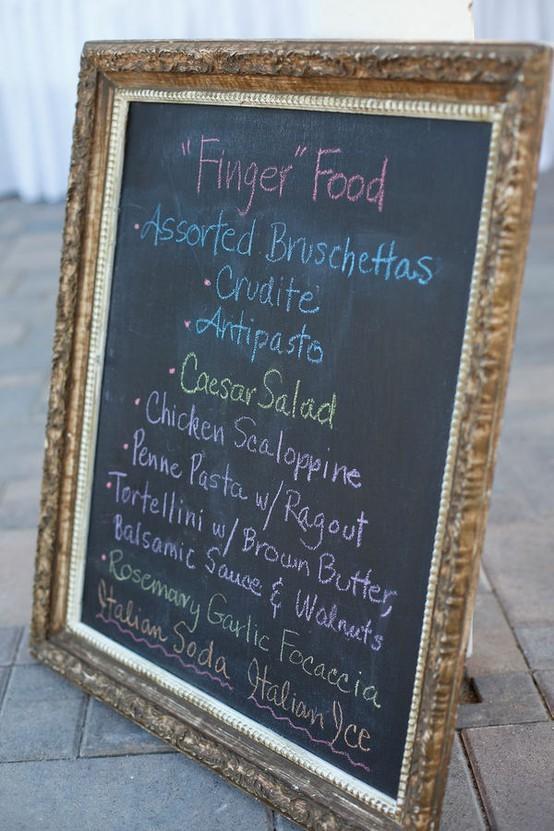 "Finger" Food
• Assorted Bruschettas
• Crudite
• Antipasto
• Caesar Salad
• Chicken Scaloppine
• Penne Pasta w/ Ragout
• Tortellini w/ Brown Butter,
Balsamic Sauce & Walnuts
• Rosemary Garlic Focaccia
Italian Soda Italian Ice